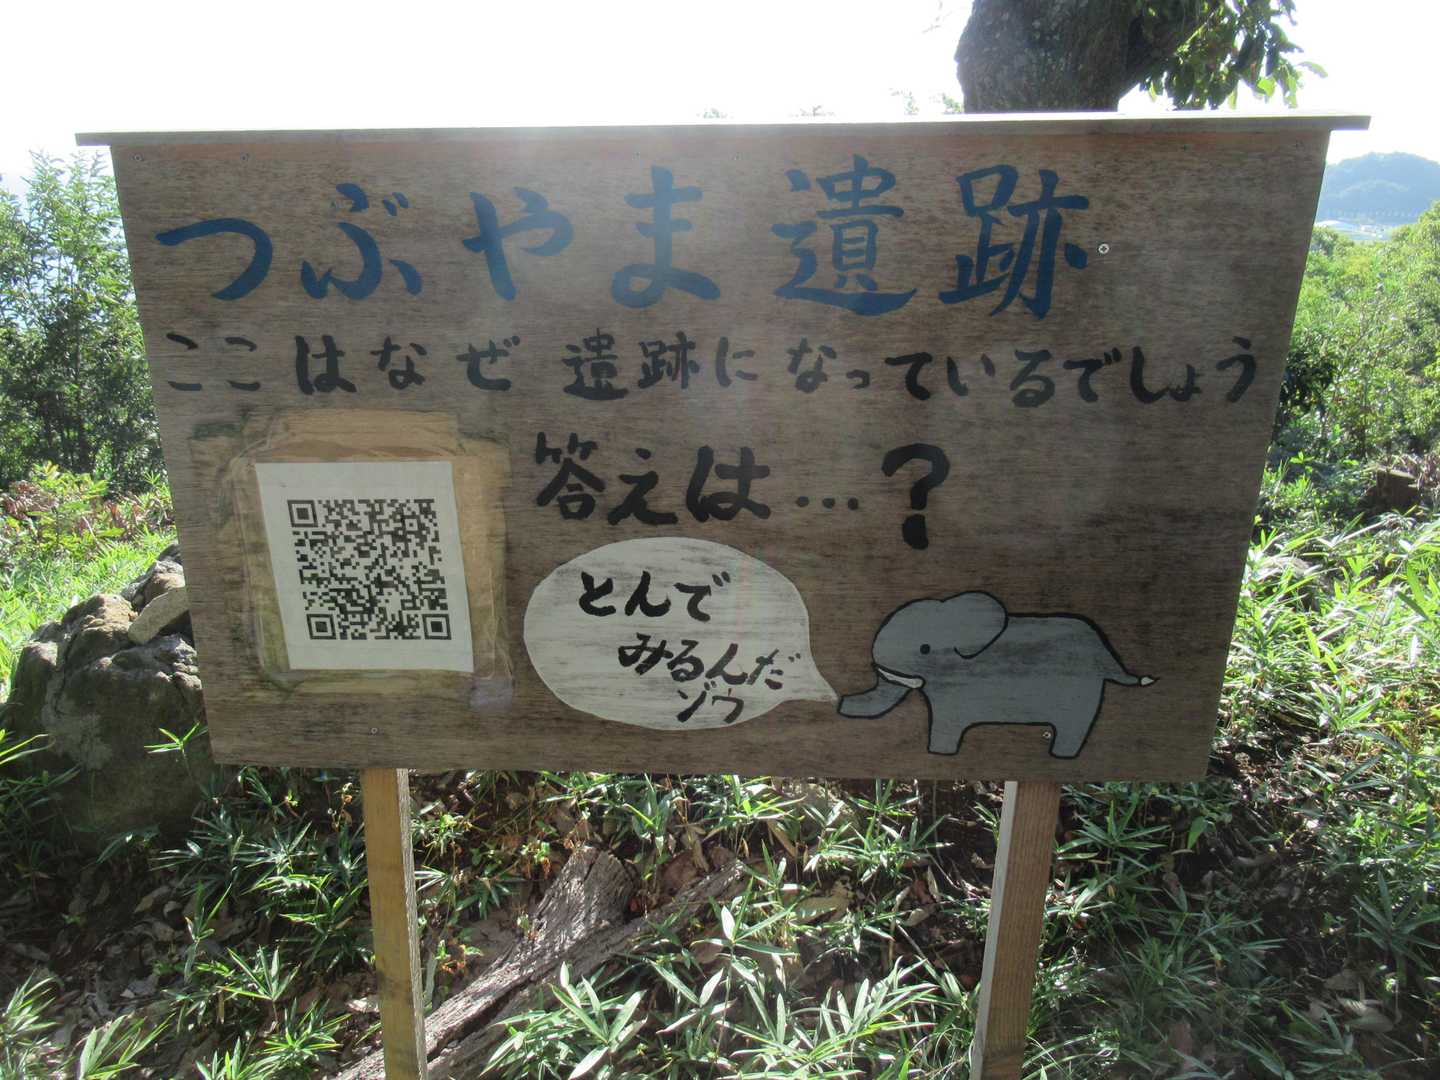 つぶやま遺跡
ここはなぜ 遺跡になっているでしょう
答えは…?
とんで
みるんだ
ゾウ